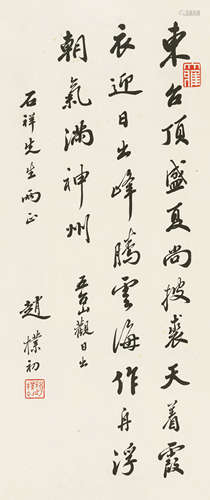 東台頂盛夏尚披裘天着霞
衣迎日出峰騰雲海作舟浮
朝氣滿神州
五台山觀日出
石祥先生兩正
趙樸初